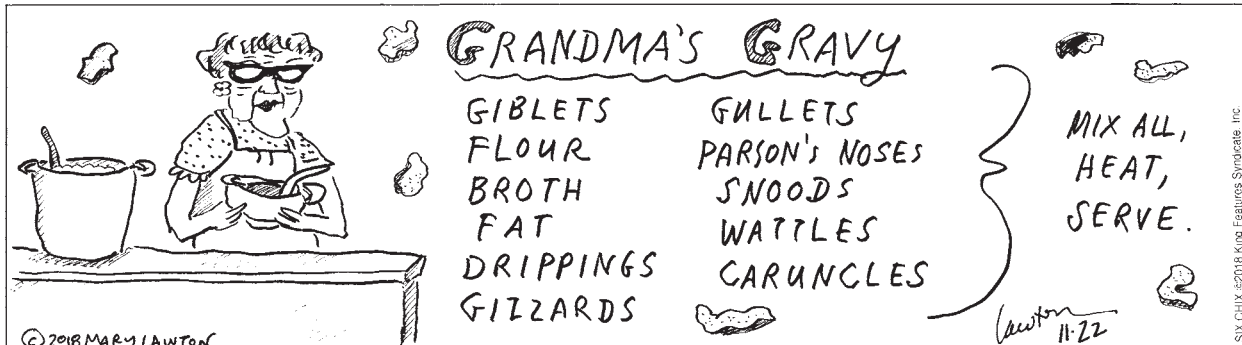 GRANDMA'S GRAVY
GIBLETS
FLOUR
BROTH
FAT
DRIPPINGS
GIZZARDS
GULLETS
PARSON'S NOSES
SNOODS
WATTLES
CARUNCLES
MIX ALL,
HEAT,
SERVE.
Lawton
11·22
© 2018 MARY LAWTON
SIX CHIX ©2018 King Features Syndicate, Inc.